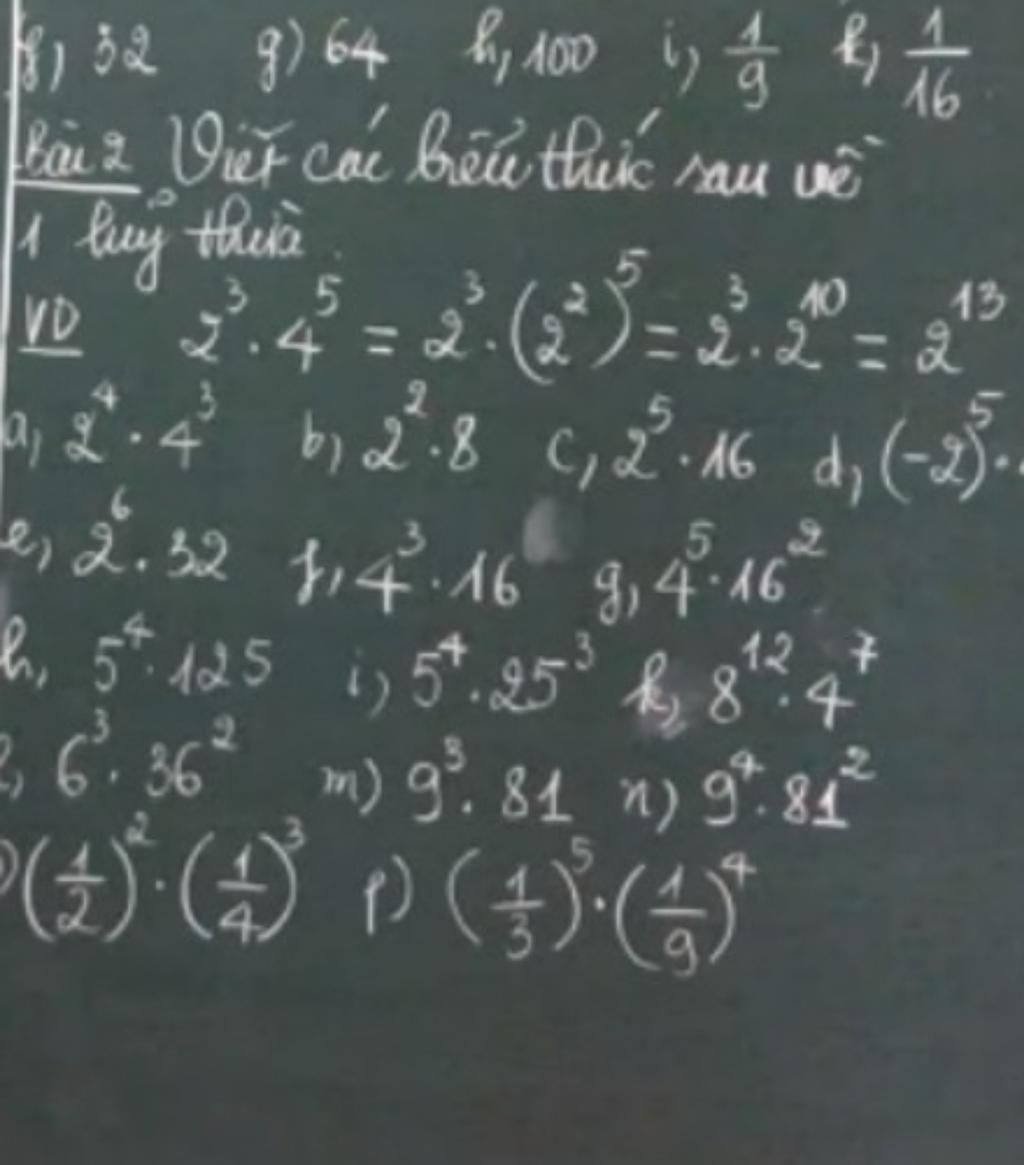 f) 32 g) 64 h, 100 i) 1/9 k) 1/16
Bài 2 Viết các biểu thức sau về
1 luỹ thừa.
VD 2³ . 4⁵ = 2³ . (2²)⁵ = 2³ . 2¹⁰ = 2¹³
a, 2⁴ . 4³ b) 2² . 8 c, 2⁵ . 16 d, (-2)⁵ .
e, 2⁶ . 32 f, 4³ . 16 g, 4⁵ . 16²
h, 5⁴ . 125 i) 5⁴ . 25³ k, 8¹² . 4⁷
l, 6³ . 36² m) 9³ . 81 n) 9⁴ . 81²
(1/2)² . (1/4)³ p) (1/3)⁵ . (1/9)⁴